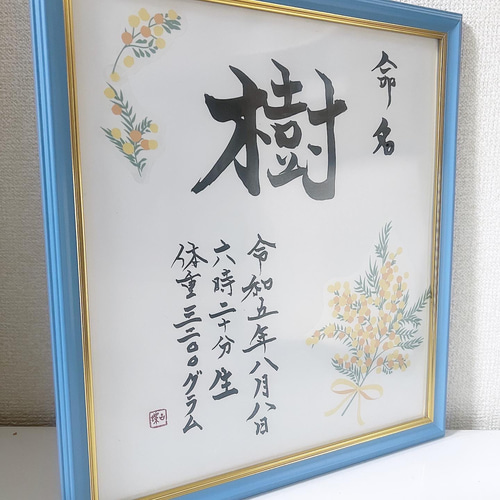 命名
樹
令和五年八月八日
六時二十分生
体重三二〇〇グラム